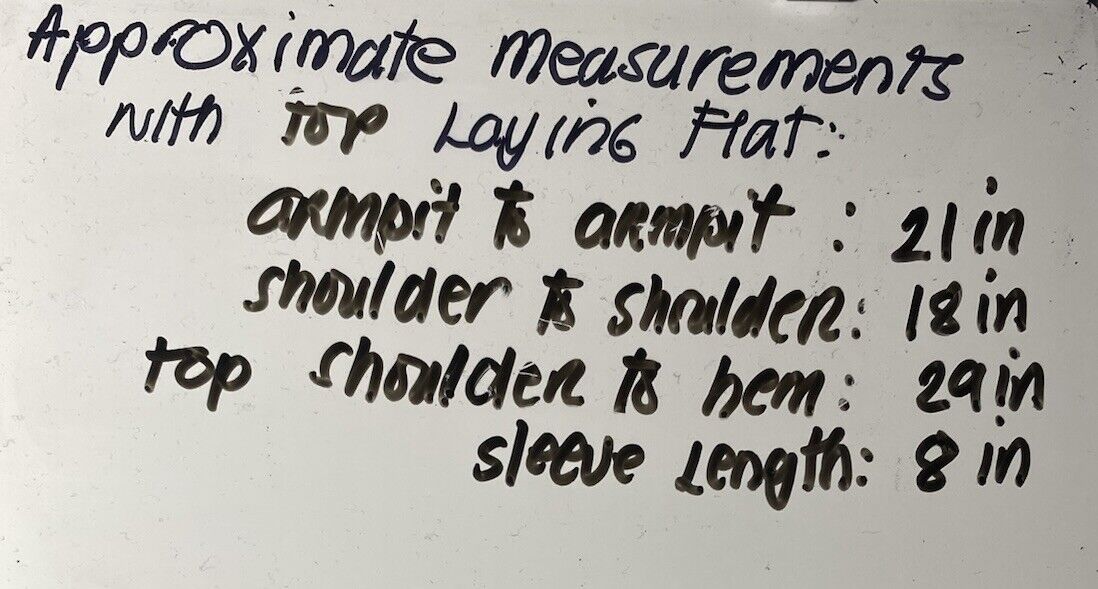 Approximate measurements
with top Laying Flat:
armpit to armpit : 21 in
shoulder to shoulder: 18 in
top shoulder to hem: 29 in
sleeve Length: 8 in